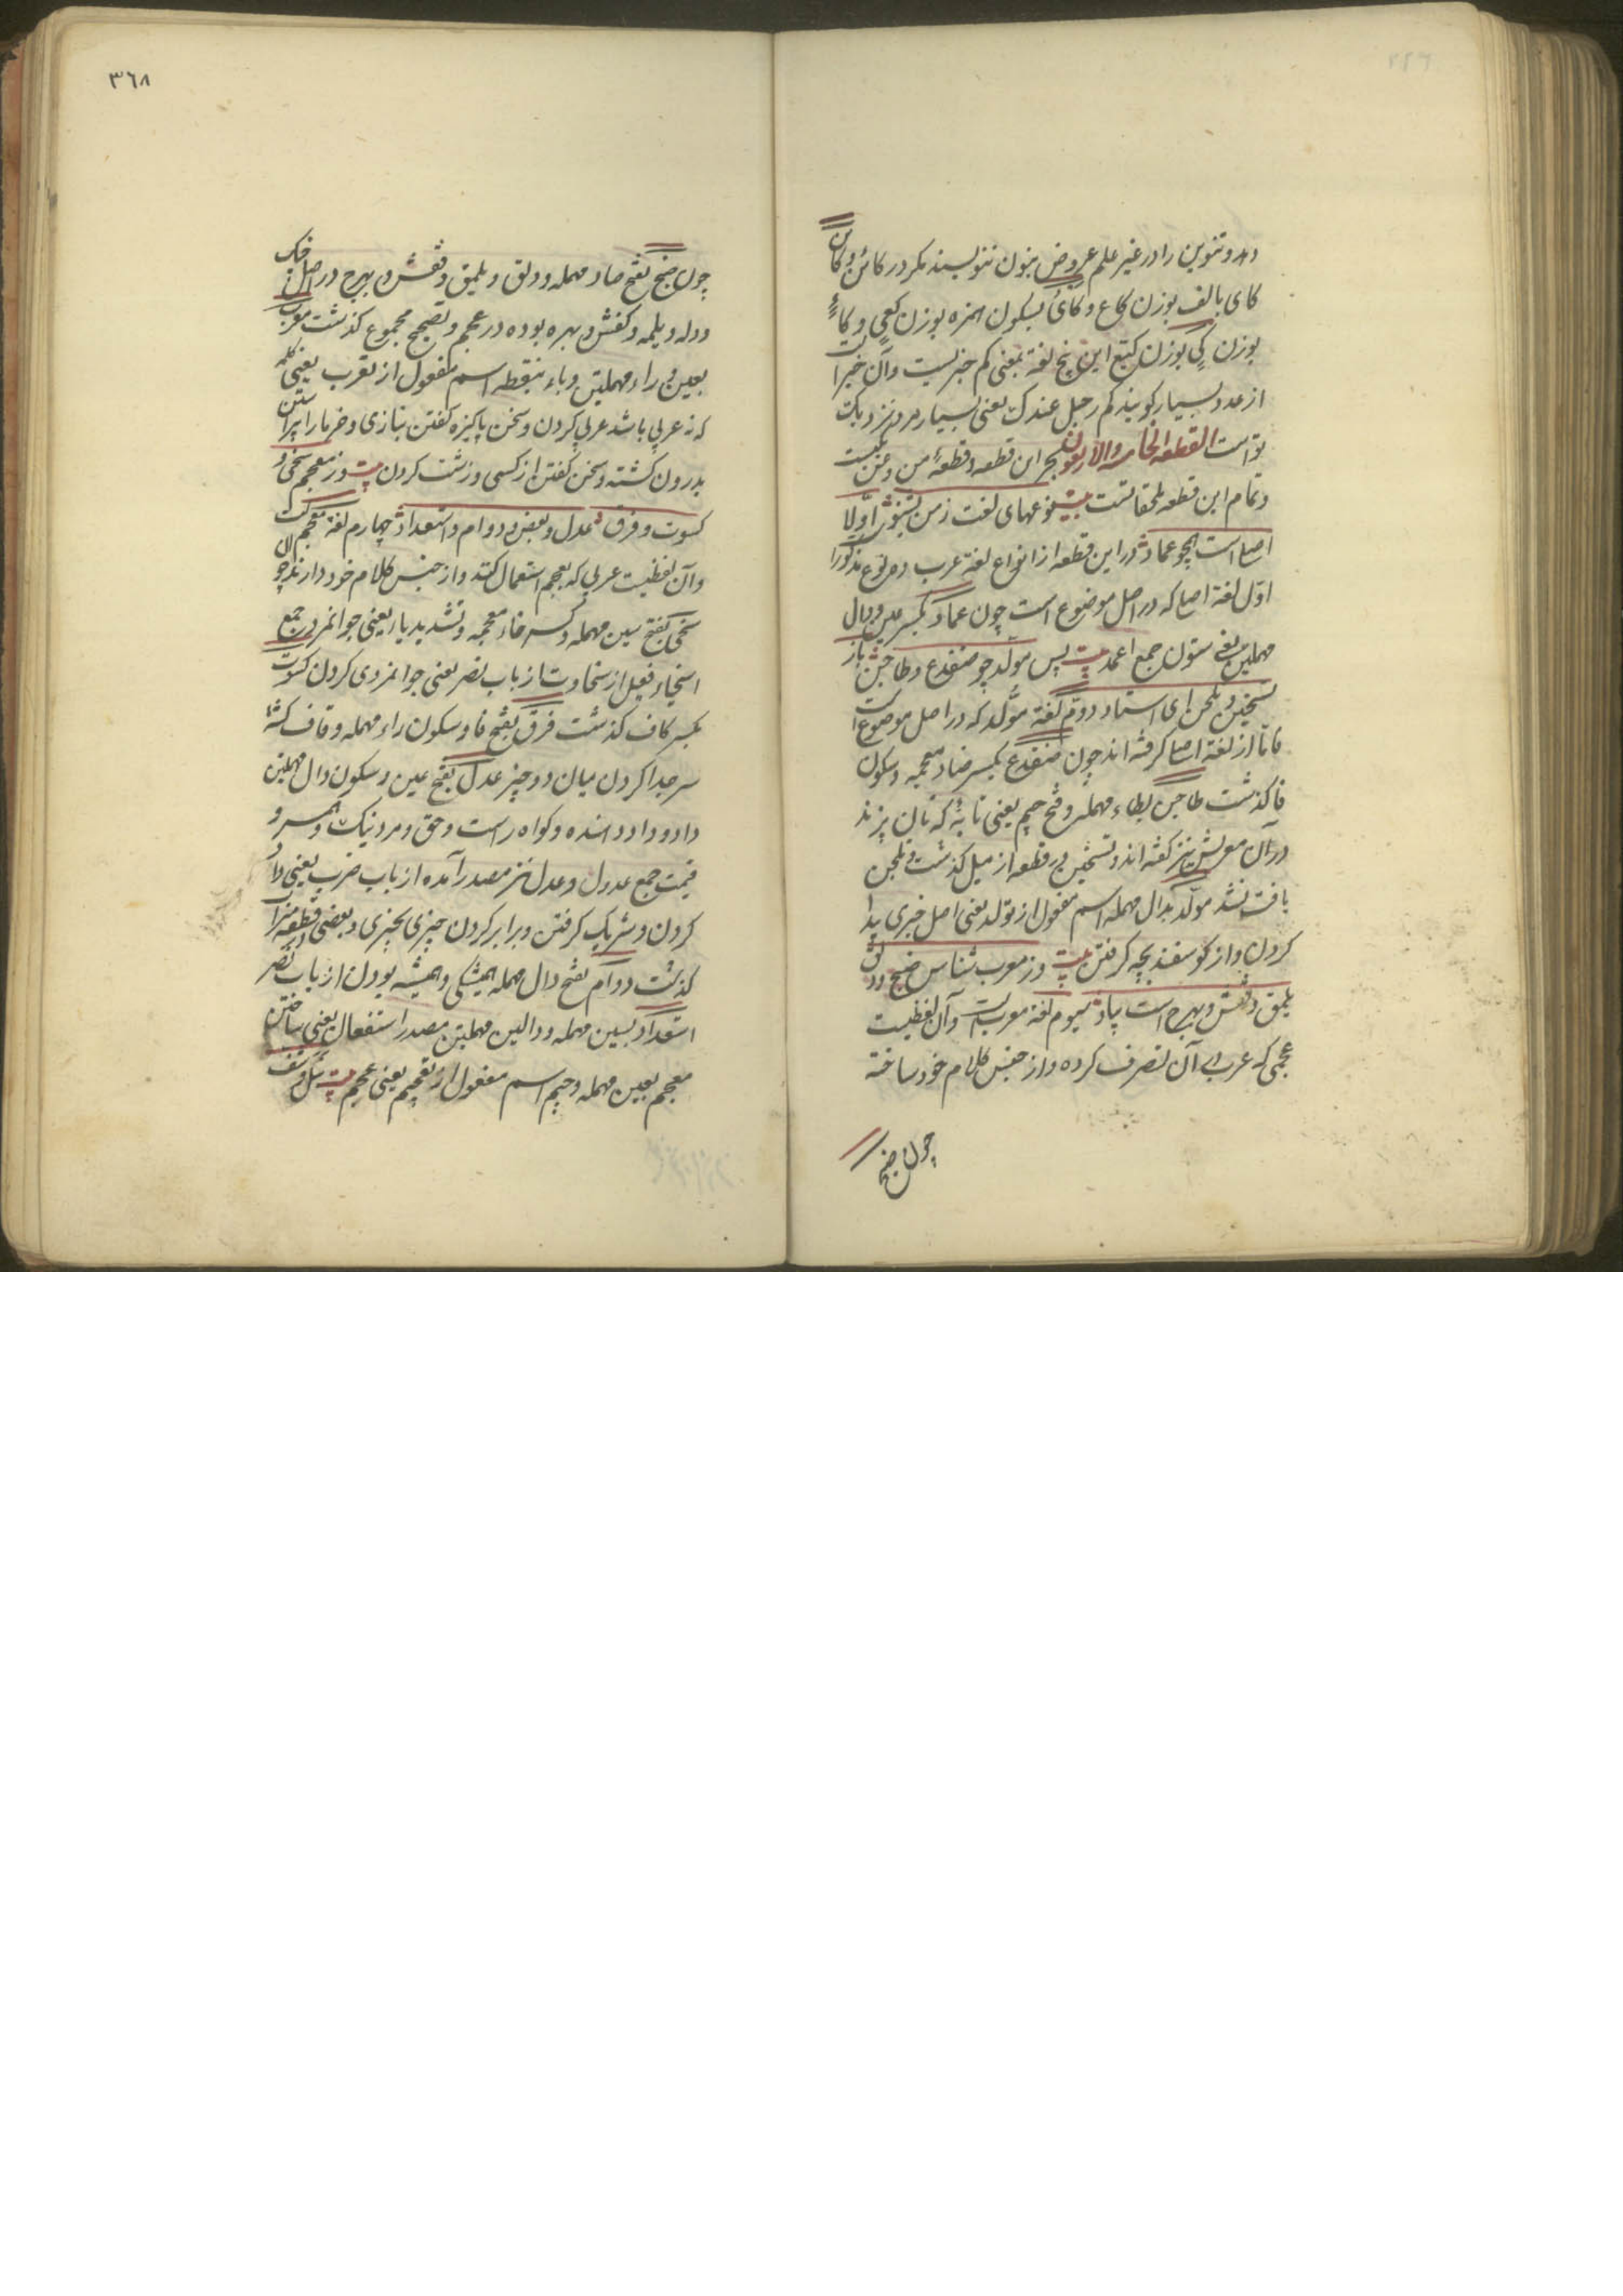 دهد و تنوین را در غیر علم عروض بنون ننویسند مکر در کائن و کاین
کای بالف بوزن کاع و کای بسکون همزه بوزن کعی و کاء
بوزن کی بوزن کتبع این پنج لغة بمعنی کم خبریست و آن خبر است
از عدد بسیار کویند کم رجل عندک یعنی بسیار مرد نزدیک
تو است القطعه الخامسه والاربعون بحر این قطعه و قطعهٔ من و عن یکیست
و تمام این قطعه ملحقاتست بیت نوعهای لغت ز من بشنو اولا
اصل است همچو عماد در این قطعه از انواع لغة عرب دو نوع مذکور
اول لغة اصل که در اصل موضوع است چون عماد بکسر عین و دال
مهملتین یعنی ستون جمع اعمده بیت پس مولد چو ضفدع و طاجن باز
تسخین و بلحن ای استاد دوم لغة مولد که در اصل موضوع است
فاما از لغة اصل کرفته اند چون ضفدع بکسر ضاد معجمه و سکون
فا کذشت طاجن بطاء مهمله و فتح جیم یعنی تابهٔ که نان پزند
در آن معربش نیز کفته اند و تسخین در قطعه از میل کذشت و بلحن
یافت نشد مولد بدال مهمله اسم مفعول از تولد یعنی اصل خبری پیدا
کردن و از کوسفند بچه کرفتن بیت وز معرب شناس صنج و دلق
یلمق و قفش و بهرج است بیاد سیوم لغة معرب است و آن لفظیست
عجمی که عرب در آن تصرف کرده و از جنس کلام خود ساخته
چون صنج
٣٦٨
چون صنج بفتح صاد مهمله و دلق و یلمق و قفش و بهرج در اصل چنک
و دله و یلمه و کفش و بهره بوده در عجم و تصحیح مجموع کذشت معرب
بعین و راء مهملتین و باء بنقطه اسم مفعول از تعرب یعنی کلمه
که نه عربی باشد عربی کردن و سخن پاکیزه کفتن بتازی و خرما را پیراستن
بدرون کشته و سخن کفتن از کسی و زشت کردن بیت وز معجم سخی و
کسوت و فرق عدل و بعض و دوام و استعداد چهارم لغة معجم است
و آن لفظیست عربی که بعجم استعمال کنند و از جنس کلام خود دارند چو
سخی بفتح سین مهمله و کسر خاء معجمه و تشدید یا یعنی جوانمرد جمع
اسخیاء فعیل از سخاوت از باب نصر یعنی جوانمردی کردن کسوت
بکسر کاف کذشت فرق بفتح فا و سکون راء مهمله و قاف
سر جدا کردن میان دو چیز عدل بفتح عین و سکون دال مهملتین
داد و داد دهنده و کواه راست و حق و مرد نیک و همسر و
قیمت جمع عدول و عدل نیز مصدر آمده از باب ضرب یعنی داد
کردن و شریک کرفتن و برابر کردن چیزی بچیزی و بعضی قطعه
کذشت دوام بفتح دال مهمله همیشکی و همیشه بودن از باب نصر
استعداد بسین مهمله و دالین مهملتین مصدر استفعال یعنی ساختن
معجم بعین مهمله و جیم اسم مفعول از تعجیم یعنی عجم بیت